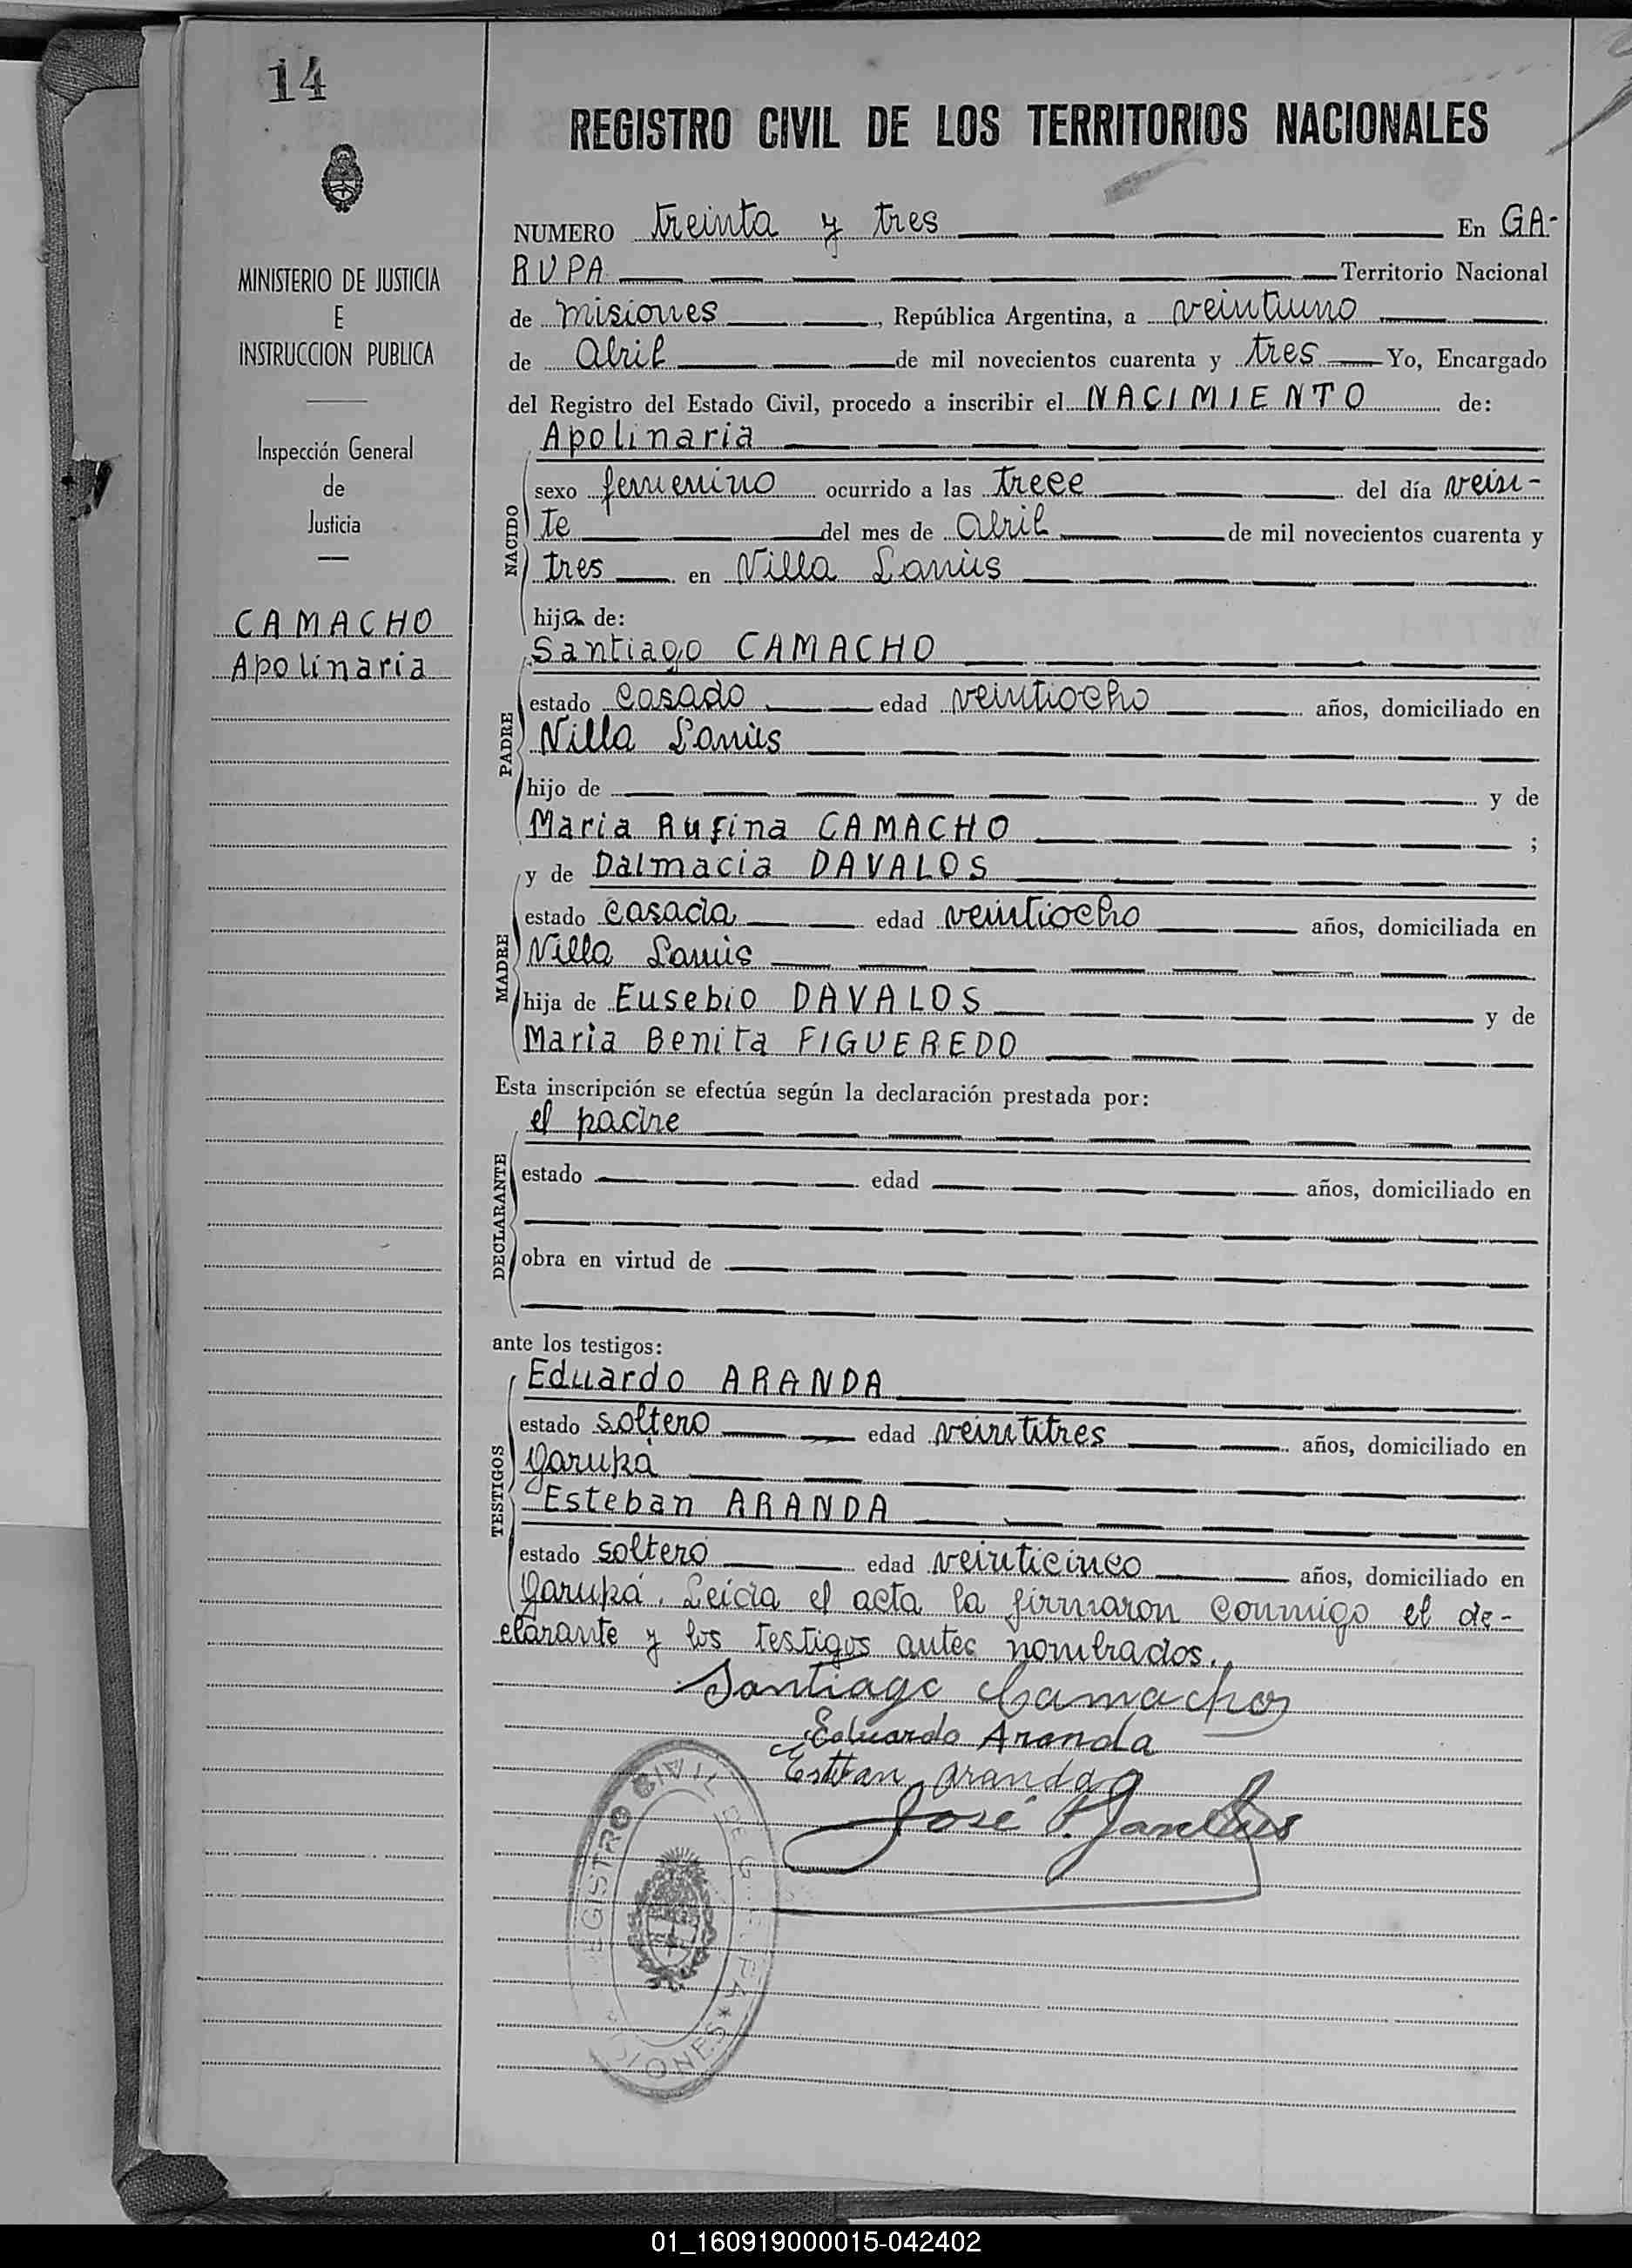 14
REGISTRO CIVIL DE LOS TERRITORIOS NACIONALES
MINISTERIO DE JUSTICIA
E
INSTRUCCION PUBLICA
Inspección General
de
Justicia
CAMACHO
Apolinaria
NUMERO treinta y tres En GA-
RUPA Territorio Nacional
de misiones, República Argentina, a veintiuno
de Abril de mil novecientos cuarenta y tres Yo, Encargado
del Registro del Estado Civil, procedo a inscribir el NACIMIENTO de:
Apolinaria
NACIDO
sexo femenino ocurrido a las trece del día vein-
te del mes de Abril de mil novecientos cuarenta y
tres en Villa Lanús
hija de:
Santiago CAMACHO
PADRE
estado casado edad veintiocho años, domiciliado en
Villa Lanús
hijo de y de
Maria Rufina CAMACHO ;
y de Dalmacia DAVALOS
MADRE
estado casada edad veintiocho años, domiciliada en
Villa Lanús
hija de Eusebio DAVALOS y de
Maria Benita FIGUEREDO
Esta inscripción se efectúa según la declaración prestada por:
el padre
DECLARANTE
estado edad años, domiciliado en
obra en virtud de
ante los testigos:
Eduardo ARANDA
TESTIGOS
estado soltero edad veintitres años, domiciliado en
Garupá
Esteban ARANDA
estado soltero edad veinticinco años, domiciliado en
Garupá. Leida el acta la firmaron conmigo el de-
clarante y los testigos antes nombrados.
Santiago Camacho
Eduardo Aranda
Esteban Aranda
José
REGISTRO CIVIL DE
01_160919000015-042402